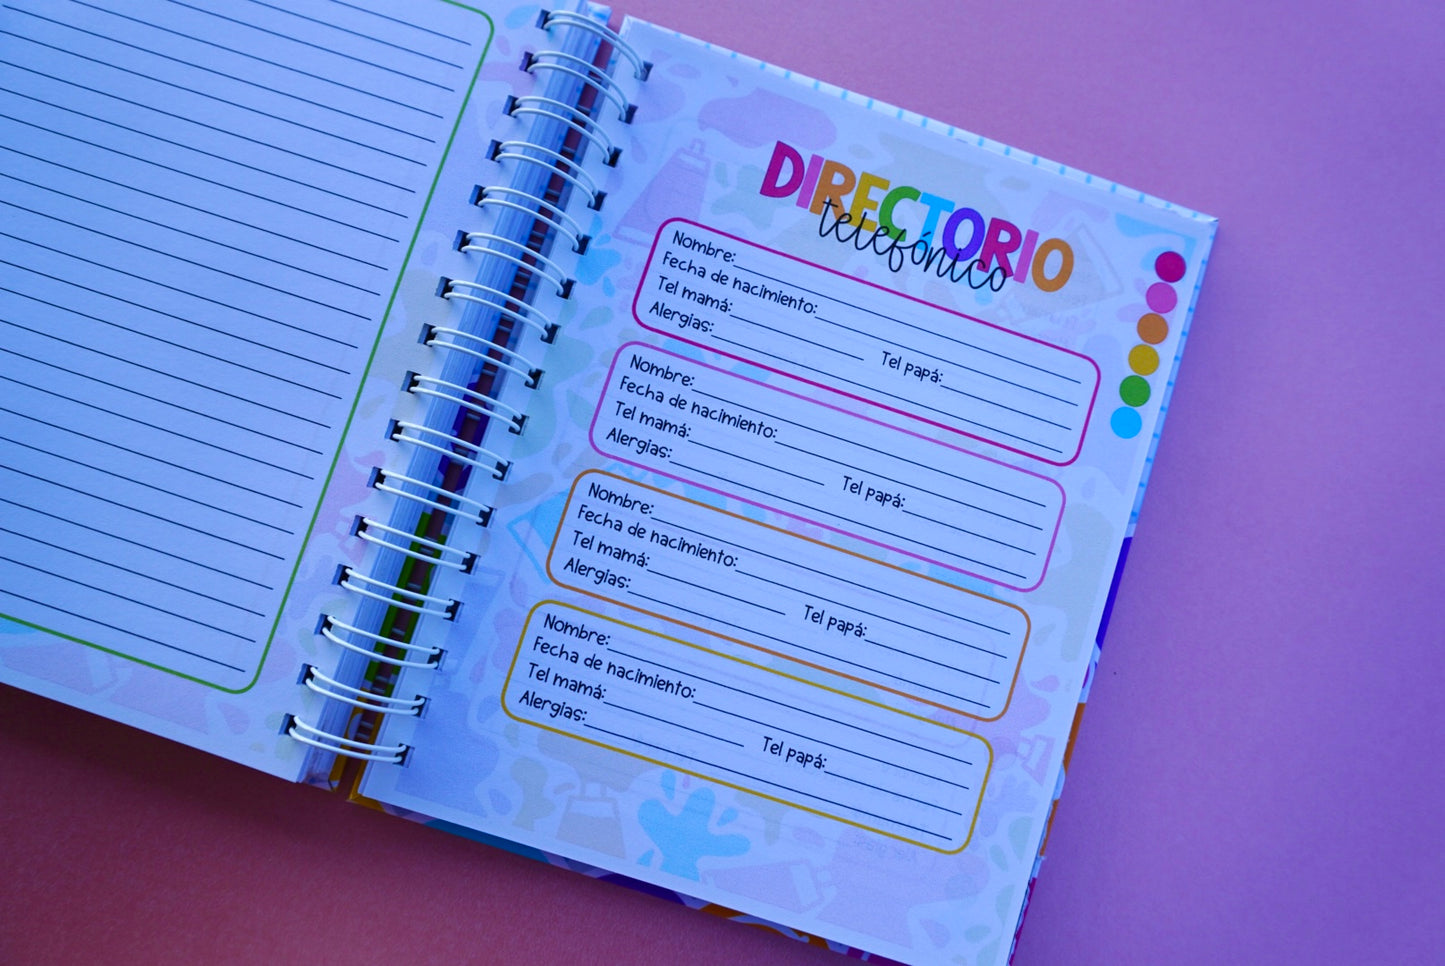 DIRECTORIO
telefónico
Nombre:
Fecha de nacimiento:
Tel mamá: Tel papá:
Alergias:
Nombre:
Fecha de nacimiento:
Tel mamá: Tel papá:
Alergias:
Nombre:
Fecha de nacimiento:
Tel mamá: Tel papá:
Alergias:
Nombre:
Fecha de nacimiento:
Tel mamá: Tel papá:
Alergias: